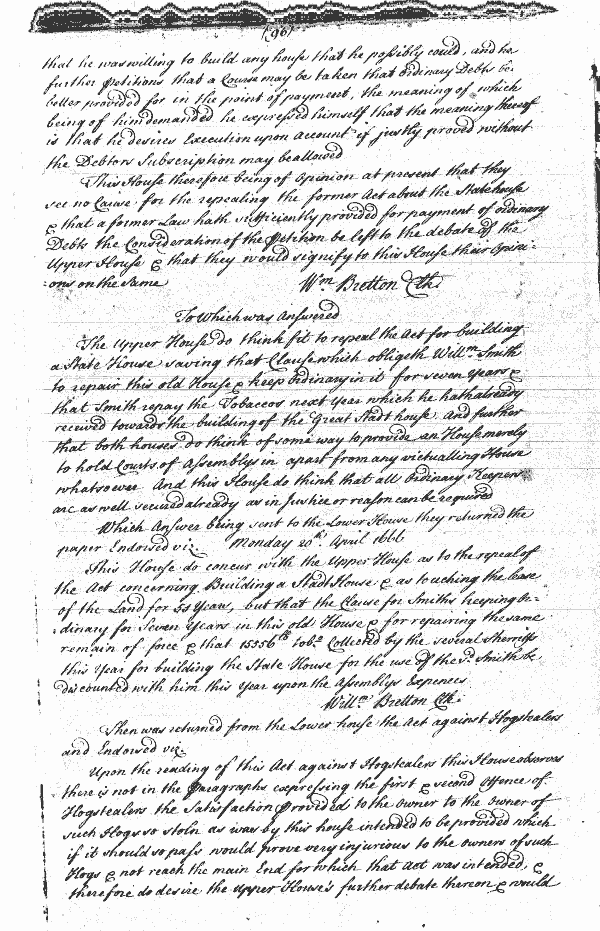 (96)
that he was willing to build any house that he possibly could, and he
further Petitions that a Course may be taken that Ordinary Debts be
better provided for in the point of payment, the meaning of which
being of him demanded he expressed himself that the meaning thereof
is that he desires Execution upon Account if justly proved without
the Debtors Subscription may be allowed
This House therefore being of Opinion at present that they
see no Cause for the repealing the former Act about the Statehouse
& that a former Law hath sufficiently provided for payment of ordinary
Debts the Consideration of the Petition be left to the debate of the
Upper House & that they would signify to this House their Opini-
ons on the same
Wm. Bretton Clk:
To Which was Answered
The Upper House do think fit to repeal the Act for building
a State House saving that Clause which obligeth Willm. Smith
to repair this old House & keep ordinary in it for seven Years &
that Smith repay the Tobaccos next Year which he hath already
received towards the building of the Great Stadt house. And further
that both houses do think of some way to provide an House merely
to hold Courts of Assemblys in apart from any victualling House
whatsoever And this House do think that all Ordinary Keepers
are as well secured already as in Justice or reason can be required
Which Answer being sent to the Lower House they returned the
paper Endorsed viz. Monday 20th. April 1666
This House do concur with the Upper House as to the repeal of
the Act concerning Building a Stadt House & as touching the lease
of the Land for 55 Years, but that the Clause for Smiths keeping Or-
:dinary for Seven Years in this old House & for repairing the same
remain of force & that 15556lb tobo. Collected by the several Sherriffs
this Year for building the State House for the use of the sd. Smith be
discounted with him this Year upon the Assemblys Expences
Willm. Bretton Clk:
Then was returned from the Lower house the Act against Hogstealers
and Endorsed viz.
Upon the reading of this Act against Hogstealers this House observes
there is not in the Paragraphs expressing the first & second Offence of
Hogstealers the Satisfaction provided to the Owner to the Owner of
such Hogs so stolen as was by this house intended to be provided which
if it should so pass would prove very injurious to the owners of such
Hogs & not reach the main End for which that Act was intended, &
therefore do desire the Upper House's further debate thereon & would